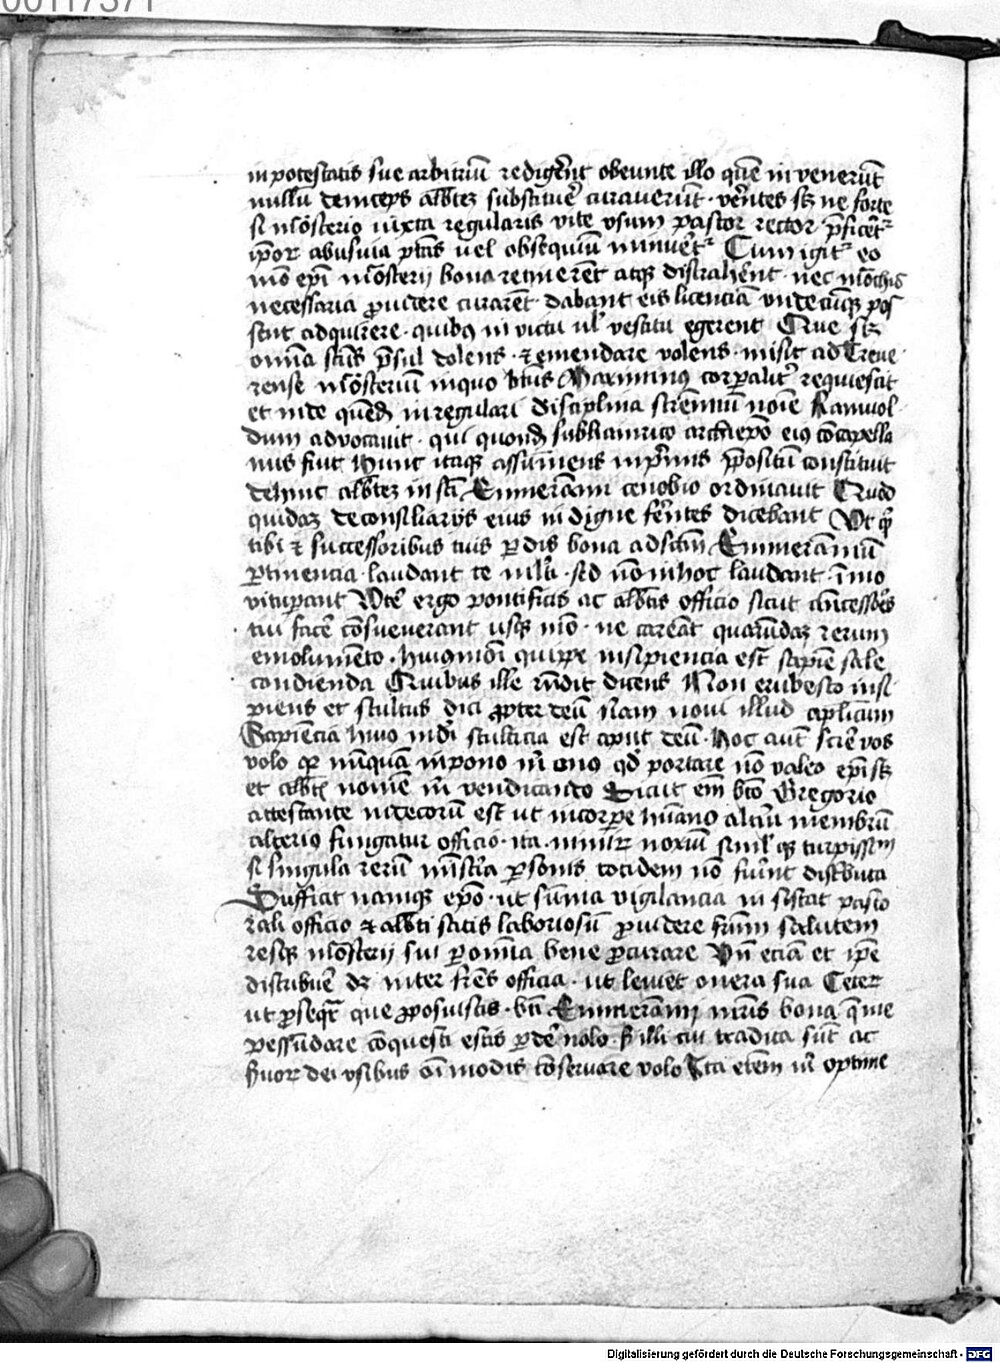 00117371
in potestatis sue arbitriū redigēnt obeunte illo quē invenerūt
nullū deinceps abbtez substituē curaverūt · verētes sz ne forte
si mōsterio iuxta regularis vite usum pastor rector p̄ficēt
ip̄or abusiva ptās vel obsequiū minuēt Cum igit eo
mō ep̄i mōsterij bona retinerēt atqz distrahēnt · nec mōchis
necessaria p̱uidere curarēt · dabant eis licenciā undecūqz pos
sēt adquirere · quibus in victu ul vestitu egerent Que sz
omnia sctūs p̄sul dolens · et emendare volens · misit ad Treve
rense mōsteriū in quo btūs Maximinus corpalit requiescit
et inde quēdā in regulari disciplina strēnuū noīe Ramuol
dum advocavit · qui quondā sub Hainrico archiepō eius cōcapella
nus fuit Hunc itaqz assumens in p̄mis p̄positū constituit
dehinc abbtez in scti Emmerammi cenobio ordinavit Quod
quidaz de consiliarijs eius indigne ferētes dicebant Ut qd
tibi et successoribus tuis pdis bona ad sctūm Emmerammū
ptinencia · laudant te multi · sed nō in hoc laudant · īmo
vitupant Utē ergo pontificis ac abbtis officio sicut antecessōrs
tui facē cōsueverant usqz mō · ne careāt quarūdaz rerum
emolumēto · huiusmodi quippe insipiencia est sapiē sale
condienda Quibus ille rn̄dit dicens Non erubesco insi
piens et stultus dici ppter deū Nam novi illud aplicum
Sapiencia huius mōdi stulticia est aput deū · Hoc aut scire vos
volo qz nūnquā inpono m̄ onus qd portare nō valeo ep̄i sz
et abbtis nomē m̄ vendicando Dicit em̄ btō Gregorio
attestante indecorum est ut in corpe humano alterū membrū
alterius fungatur officio · ita nimirz noxiū simulqz turpissim
si singula rerū mīstia psonis totidem nō fuint distbuta
Sufficiat namqz epō · ut sūma vigilancia insistat pasto
rali officio et abbti satis laboriosū puidere frūm salutem
resqz mōsterij sui p omnia bene pcurare Un̄ etiā et ipe
distribuē dz inter frēs officia · ut levet onera sua Ceterz
ut pseqr que pposuistis · bti Emmerammi mris bona que me
pessūdare cōquesti estis pdē nolo · s illi cui tradita sūt ac
suor dei usibus om̄imodis cōservare volo Ita etem m̄ optime
Digitalisierung gefördert durch die Deutsche Forschungsgemeinschaft - DFG